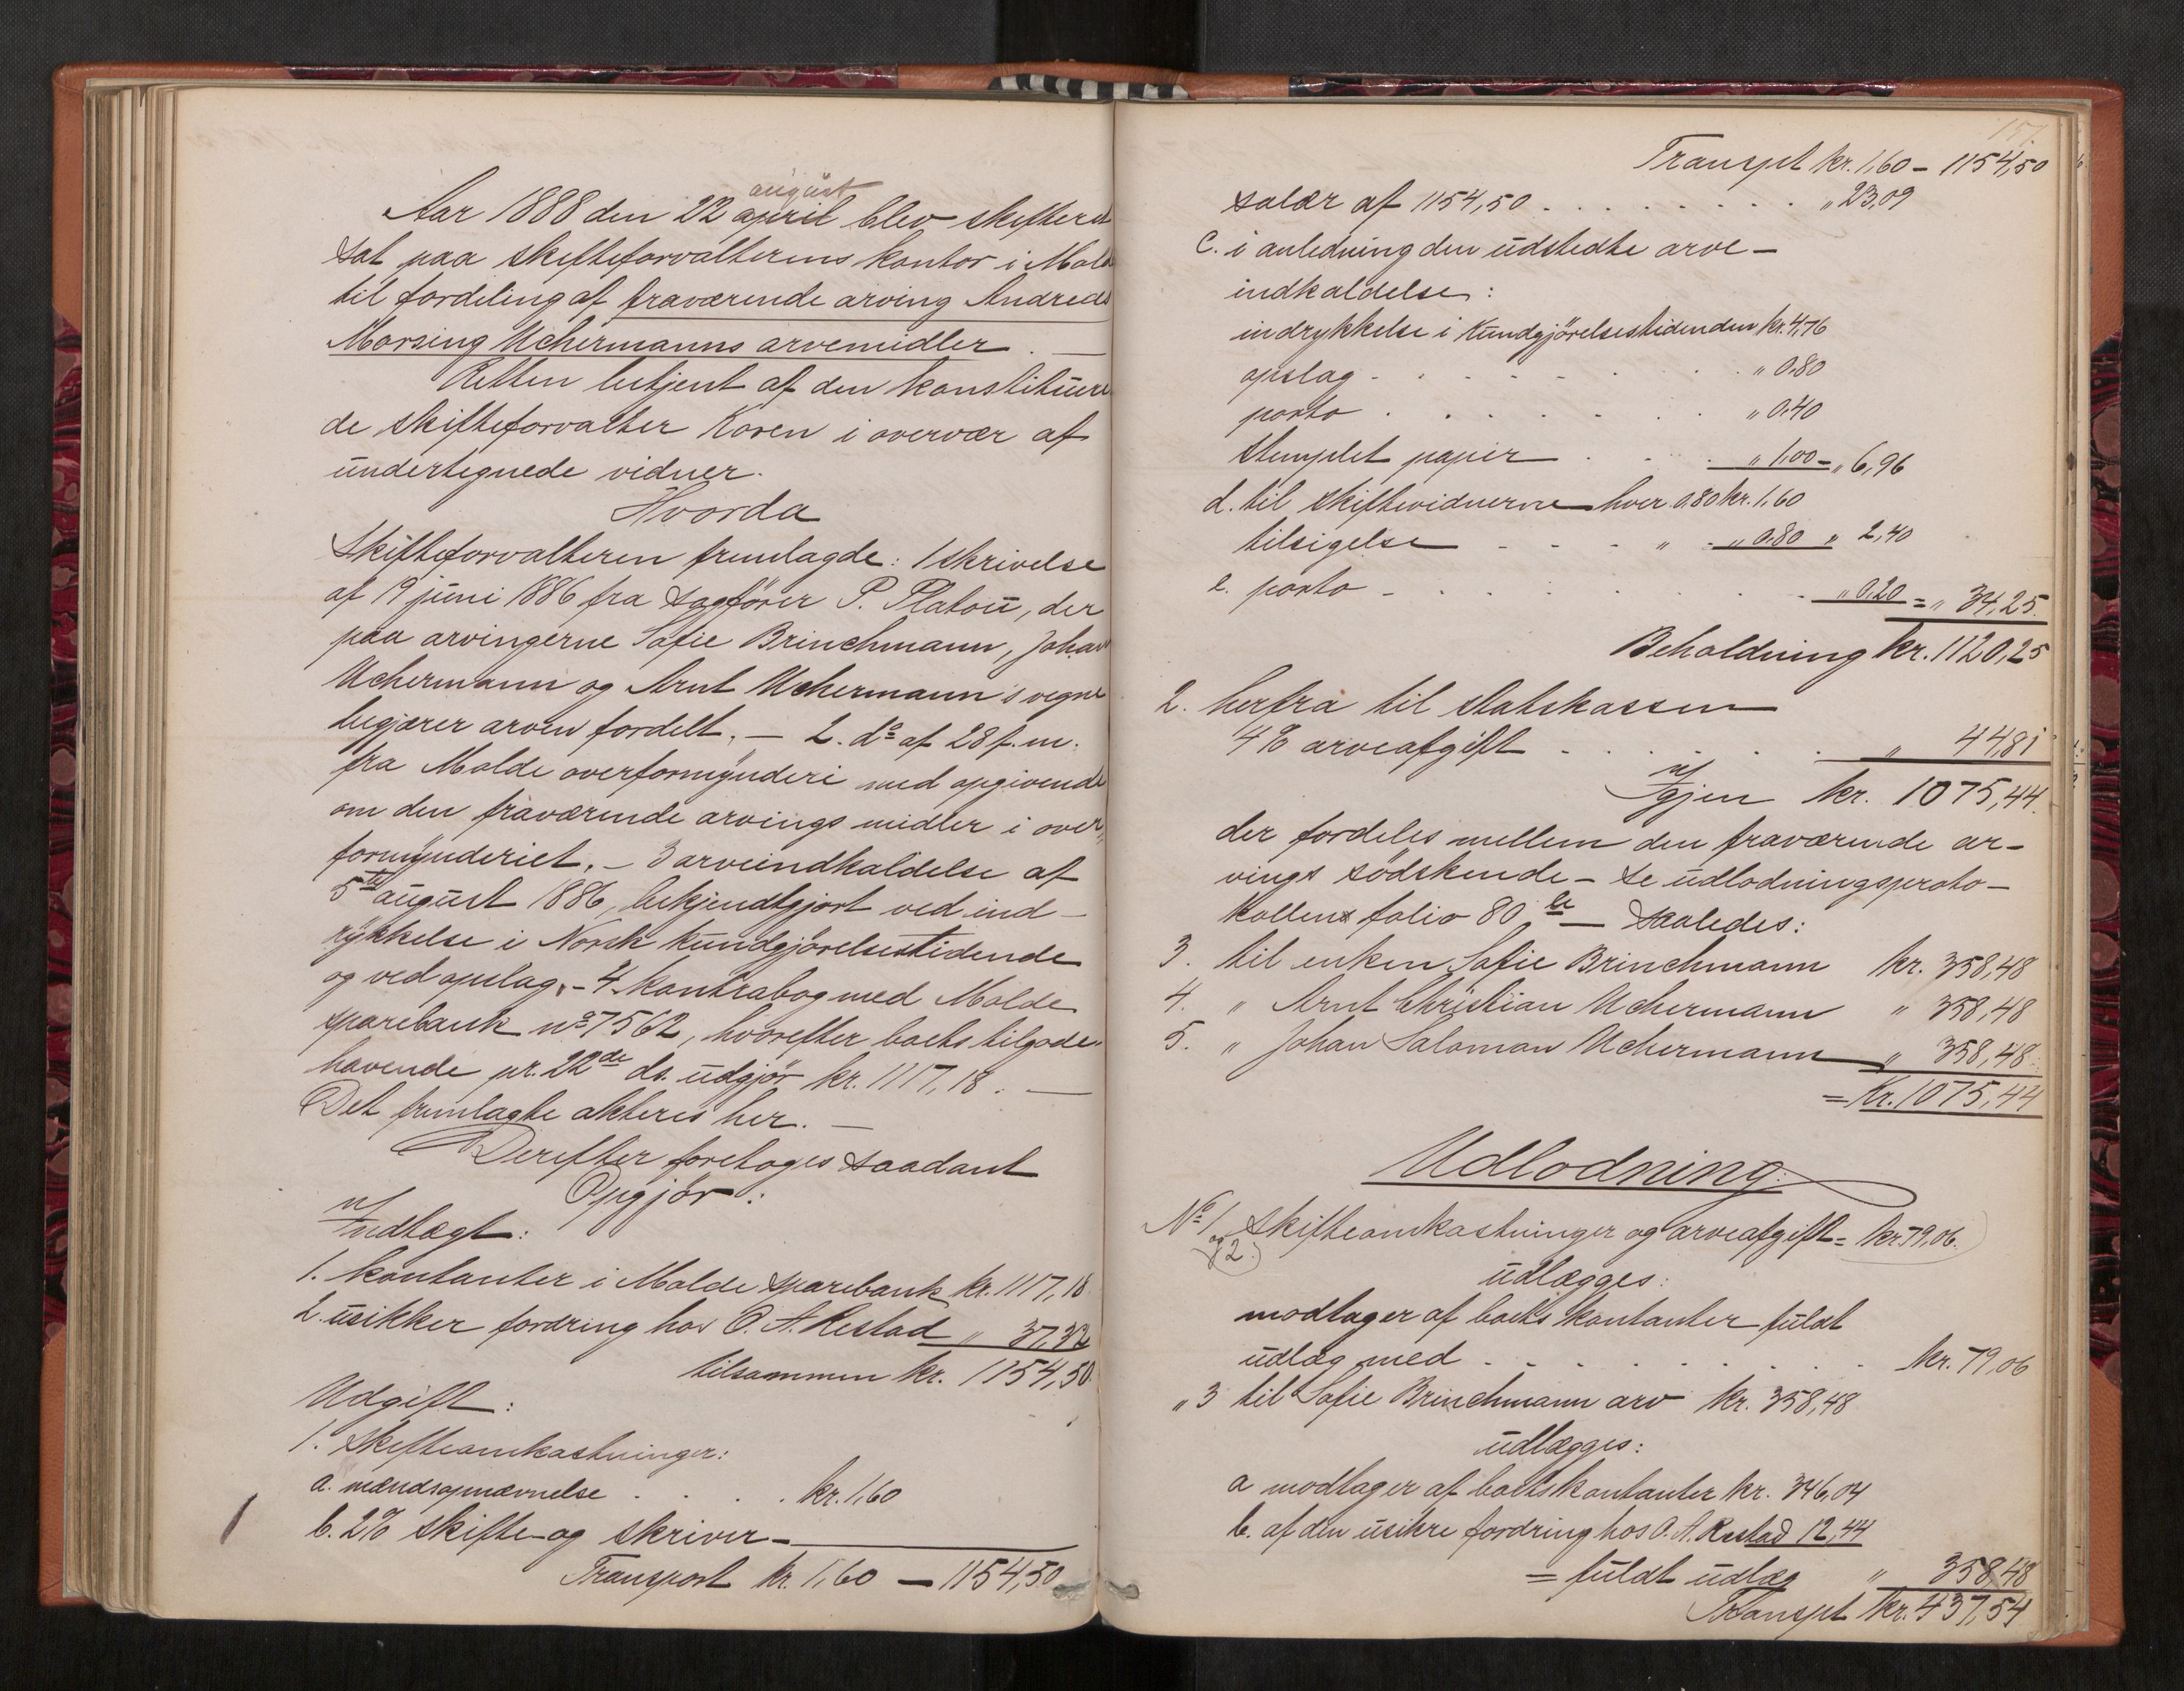 august
Aar 1888 den 22 april blev skifteret
sat paa skifteforvalterens kontor i Molde
til fordeling af fraværende arving Andreas
Morsing Uchermanns arvemidler. —
Retten betjent af den konstituere
de skifteforvalter Koren i overvær af
undertegnede vidner.
Hvorda
Skifteforvalteren fremlagde: 1 skrivelse
af 19 juni 1886 fra sagfører P. Platou, der
paa arvingerne Sofie Brinchmann, Johan
Uchermann og Arnt Uchermann's vegne
begjærer arven fordelt. — 2. do af 28 f. m.
fra Molde overformynderi med opgivende
om den fraværende arvings midler i over„
formynderiet. – 3 arveindkaldelse af
5te august 1886, bekjendtgjort ved ind–
rykkelse i Norsk Kundgjørelsestidende
og ved opslag. – 4. kontrabog med Molde
sparebank no 7562, hvorefter boets tilgode„
havende pr. 22de ds. udgjør kr. 1117,18. —
Det fremlagte akteres her. —
Derefter foretoges saadant
Opgjør:
Indtægt:
1. Kontanter i Molde sparebank kr. 1117,18
2. usikker fordring hos O. A. Restad „ 37,32
tilsammen kr. 1154,50
Udgift:
1. Skifteomkostninger:
a. mændsopnævnelse . . . . kr. 1,60
b. 2% skifte- og skriver-
Transport kr. 1,60 — 1154,50
157.
Transpt kr. 1,60 – 1154,50
salær af 1154,50 . . . . . . . . „ 23,09
c. i anledning den udstedte arve–
indkaldelse:
indrykkelse i Kundgjørelsestidenden kr. 4,76
opslag . . . . . . . „ 0,80
porto . . . . . . . „ 0,40
Stemplet papir . . . „ 1,00 = „ 6,96
d. til skiftevidnerne hver 0,80 kr. 1,60
tilsigelse - - - „ - „ 0,80 „ 2,40
e. porto - . . . . . . . . „ 0,20 = „ 34,25
Beholdning kr. 1120,25
2. herfra til statskassen
4% arveafgift . . . . . . „ 44,81
Igjen kr. 1075,44
der fordeles mellem den fraværende ar–
vings sødskende – se udlodningsproto–
kollens folio 80 — saaledes:
3. til enken Sofie Brinchmann kr. 358,48
4. „ Arnt Christian Uchermann „ 358,48
5. „ Johan Salomon Uchermann „ 358,48
= Kr. 1075,44
Udlodning:
No 1 Skifteomkostninger og arveafgift = kr 79,06.
og 2.)
udlægges:
modtager af boets kontanter fuldt
udlæg med . . . . . . . . . . kr. 79,06
„ 3 til Sofie Brinchmann arv kr. 358,48
udlægges:
a modtager af boets kontanter kr. 346,04
b. af den usikre fordring hos O. A. Restad 12,44
= fuldt udlæg „ 358,48
Transpt kr. 437,54